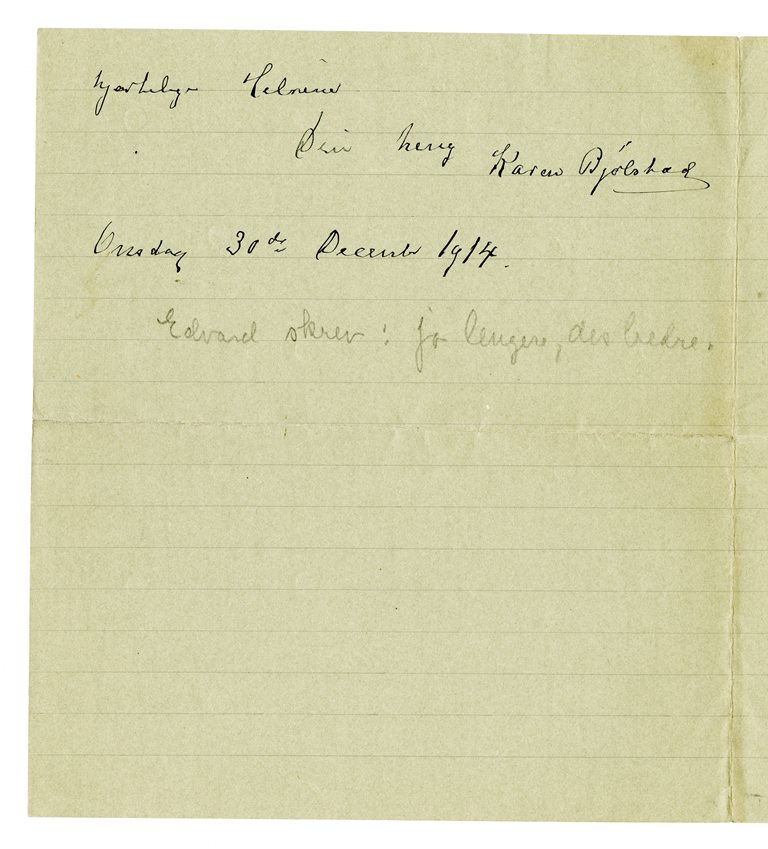 hjertelige Hilsener
Din heng
Karen Bjølstad
Onsdag 30de December 1914.
Edvard skrev: jo lengere, des bedre.